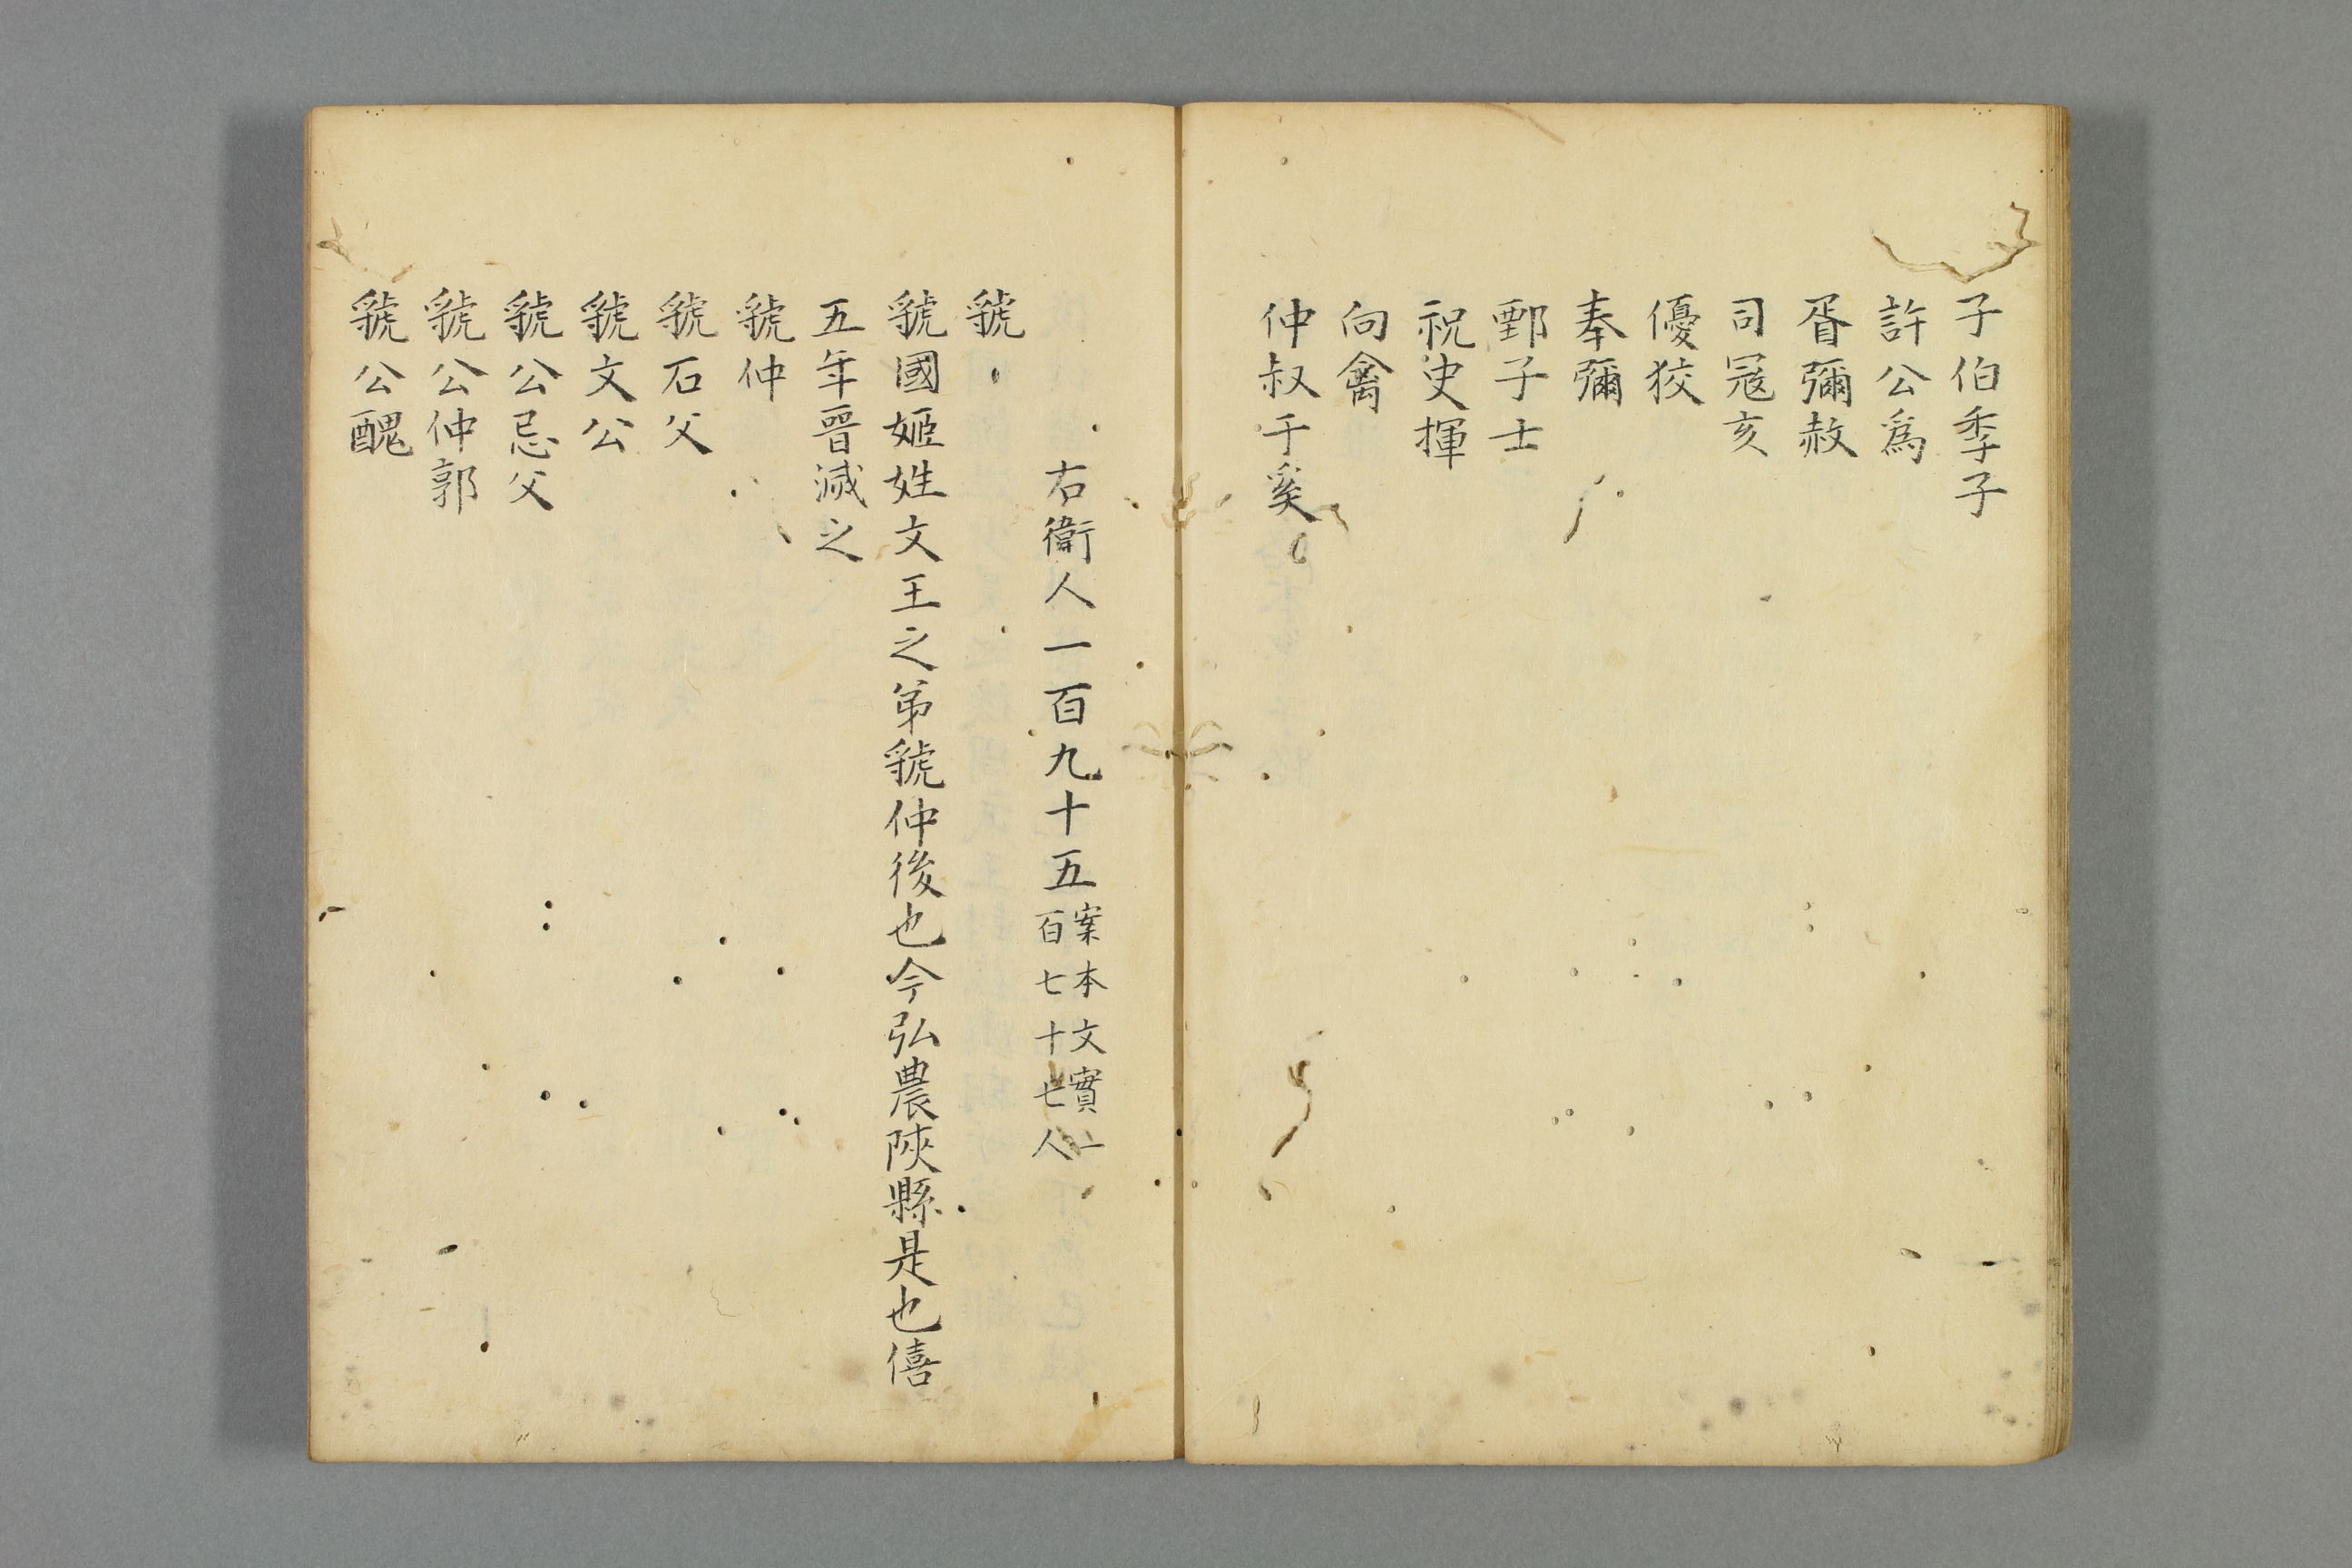 子伯季子
許公爲
胥彌赦
司冦亥
優狡
奉彌
鄄子士
祝史揮
向禽
仲叔于奚
右衛人一百九十五案本文實一百七十七人
虢
虢國姬姓文王之弟虢仲後也今弘農陜縣是也僖
五年晉滅之
虢仲
虢石父
虢文公
虢公忌父
虢公仲郭
虢公醜